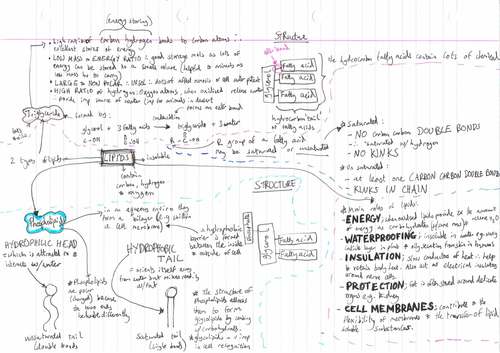 (energy storing)
• High ratio of carbon hydrogen bonds to carbon atoms:
excellent stores of energy
• LOW MASS to ENERGY RATIO: good storage mols as lots of
energy can be stored in a small volume (helpful to animals as
less mass to carry)
• LARGE + NON POLAR: INSOL: doesn't affect osmosis or cell water potent
• HIGH RATIO of hydrogen: Oxygen atoms, when oxidised release water
imp source of water (imp for animals in desert)
Structure
ester bond
glycerol
Fatty acid
Fatty acid
Fatty acid
hydrocarbon tail
of fatty acids
the hydrocarbon fatty acids contain lots of chemical
Triglyceride
formed by:
condensation
forms an ester bond
glycerol + 3 fatty acids → triglyceride + 3 water
fats
oils
2 types of lipids
LIPIDS
insoluble
contain
carbon, hydrogen
+ oxygen
R group of a fatty acid
may be saturated or unsaturated
* Saturated:
- NO carbon carbon DOUBLE BONDS
- ∴ 'saturated' w/ hydrogen
- NO KINKS
* Unsaturated:
- at least one CARBON CARBON DOUBLE BOND
- KINKS IN CHAIN
Phospholipid
in an aqueous enviro they
form a bilayer e.g. within
a cell membrane
a hydrophobic
barrier is formed
between the inside
+ outside of cell
STRUCTURE
phosphate
glycerol
Fatty acid
Fatty acid
HYDROPHILIC HEAD
which is attracted to +
interacts w/ water
* Phospholipids
are polar
(charged) because
the two ends
behave differently
HYDROPHOBIC
TAIL
orients itself away
from water but mixes readily
w/ fat
unsaturated tail
(double bonds)
Saturated tail
(single bonds)
* the structure of
phospholipids allows
them to form
glycolipids by joining
w/ carbohydrates.
* glycolipids = v imp
in cell recognition
* Main roles of lipids:
ENERGY: when oxidised lipids provide 2x the amount
of energy as carbohydrates (same mass)
WATERPROOFING: insoluble in water eg. waxy
cuticle layer in plants
INSULATION: slow conductors of heat ∴ help
to retain body heat. Also act as electrical insulators
around nerve cells.
PROTECTION: fat is often stored around delicate
organs e.g. kidney.
CELL MEMBRANES: contribute to the
flexibility of membranes + the transfer of lipid
soluble substances.